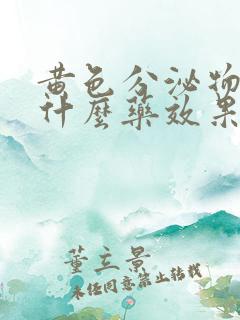 黄色分泌物
什麼藥效果
董立景
未经同意禁止转载